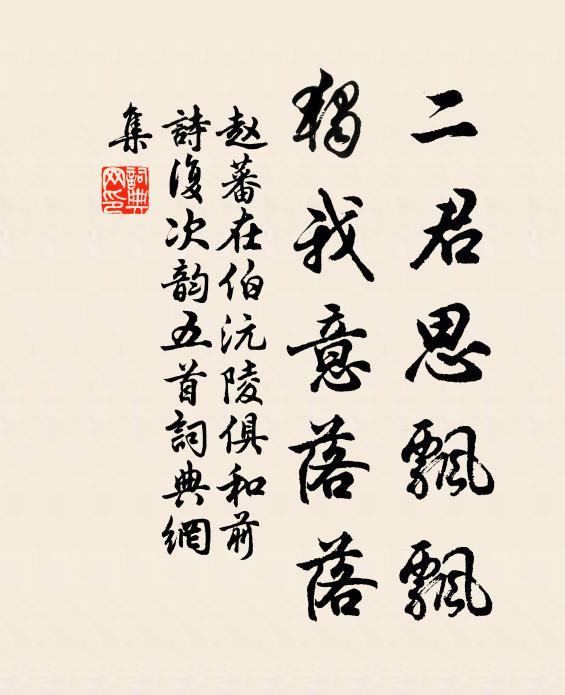 二君思飄飄
獨我意落落
赵蕃在伯沅陵俱和前
詩復次韵五首詞典網
集
詞典網印